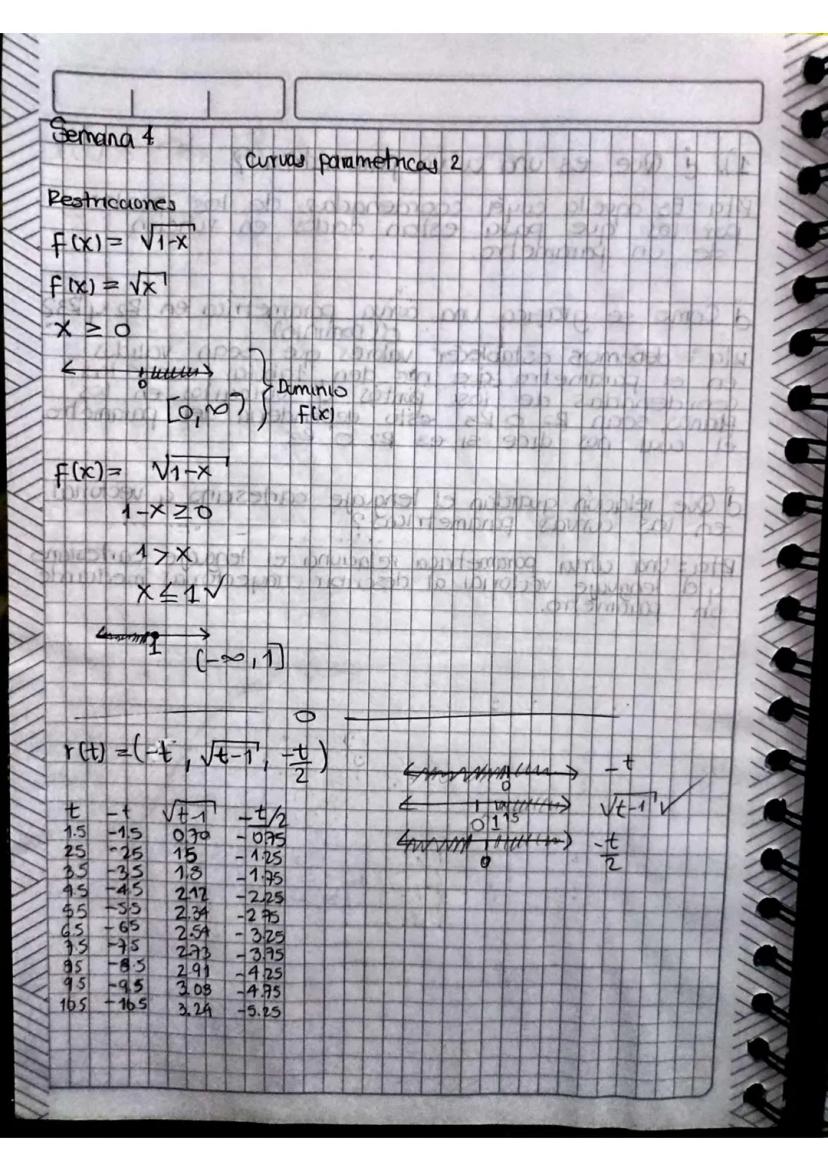 Semana 4
Curvas parametricas 2
Restricciones
f(x) = √1-x
f(x) = √x
x ≥ 0
0
[0, ∞) } Dominio f(x)
f(x) = √1-x
1-x ≥ 0
1 > x
x ≤ 1 ✓
1
(-∞, 1]
0
r(t) = (-t, √t-1, -t/2)
0 -t
0 1 1.5 √t-1 ✓
0 -t/2
t -t √t-1 -t/2
1.5 -1.5 0.70 -0.75
2.5 -2.5 1.5 -1.25
3.5 -3.5 1.8 -1.75
4.5 -4.5 2.12 -2.25
5.5 -5.5 2.34 -2.75
6.5 -6.5 2.54 -3.25
7.5 -7.5 2.73 -3.75
8.5 -8.5 2.91 -4.25
9.5 -9.5 3.08 -4.75
10.5 -10.5 3.24 -5.25